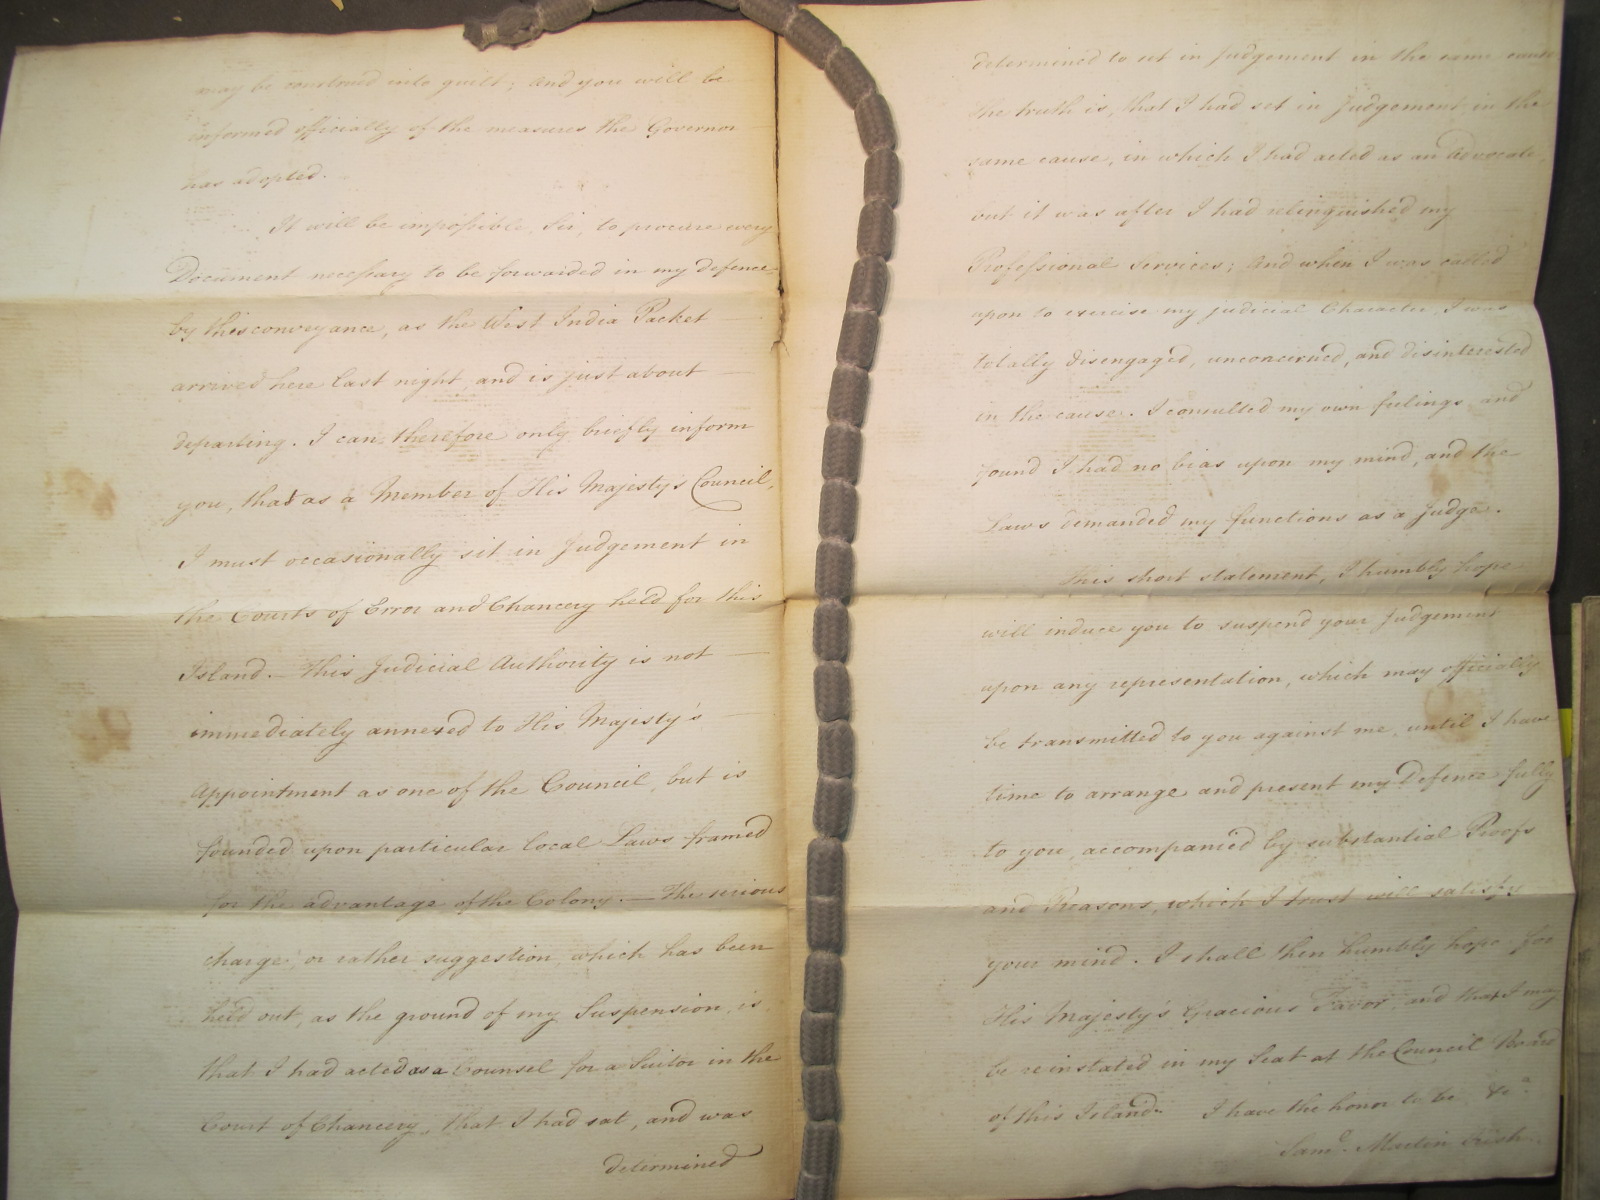 may be construed into guilt; and you will be
informed officially of the measures the Governor
has adopted.
It will be impossible, Sir, to procure every
Document necessary to be forwarded in my defence
by this conveyance, as the West India Packet
arrived here last night, and is just about
departing. I can therefore only briefly inform
you, that as a Member of His Majesty's Council,
I must occasionally sit in Judgement in
the Courts of Error and Chancery held for this
Island. — This Judicial Authority is not
immediately annexed to His Majesty's
Appointment as one of the Council, but is
founded upon particular local Laws framed
for the advantage of the Colony. — The serious
charge, or rather suggestion, which has been
held out, as the ground of my Suspension, is,
that I had acted as a Counsel for a Suitor in the
Court of Chancery, that I had sat, and was
determined
determined to sit in Judgement in the same cause
The truth is, that I had set in Judgement in the
same cause, in which I had acted as an Advocate,
but it was after I had relinquished my
Professional services; and when I was called
upon to exercise my judicial Character, I was
totally disengaged, unconcerned, and disinterested
in the cause. I consulted my own feelings, and
found I had no bias upon my mind, and the
Laws demanded my functions as a Judge.
This short statement, I humbly hope
will induce you to suspend your Judgement
upon any representation, which may officially
be transmitted to you against me, until I have
time to arrange and present my Defence fully
to you, accompanied by substantial Proofs
and Reasons, which I trust will satisfy
your mind. I shall then humbly hope for
His Majesty's Gracious Favor, and that I may
be reinstated in my Seat at the Council Board
of this Island. I have the honor to be &c.
Sam. Martin Irish